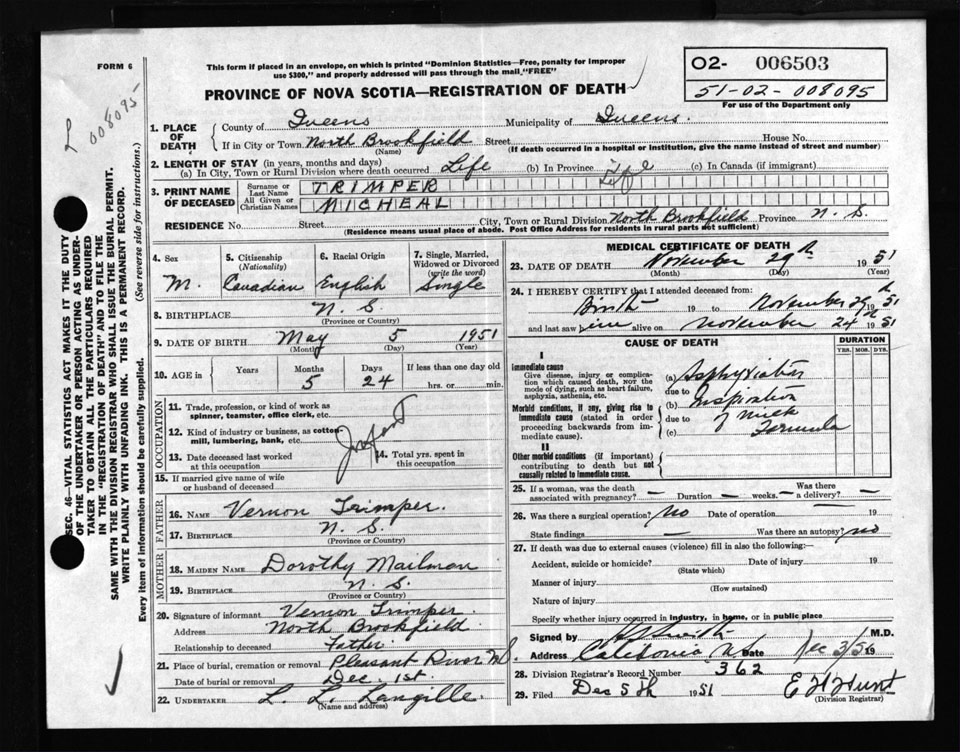 FORM 6
This form if placed in an envelope, on which is printed "Dominion Statistics—Free, penalty for improper
use $300," and properly addressed will pass through the mail "FREE"
PROVINCE OF NOVA SCOTIA—REGISTRATION OF DEATH
02- 006503
51-02-008095
For use of the Department only
008095
1. PLACE OF DEATH
County of Queens Municipality of Queens.
If in City or Town North Brookfield Street House No.
(Name) (If death occurred in a hospital or institution, give the name instead of street and number)
2. LENGTH OF STAY (in years, months and days)
(a) In City, Town or Rural Division where death occurred Life (b) In Province Life (c) In Canada (if immigrant)
3. PRINT NAME OF DECEASED
Surname or Last Name TRIMPER
All Given or Christian Names MICHEAL
RESIDENCE No. Street City, Town or Rural Division North Brookfield Province N. S.
(Residence means usual place of abode. Post Office Address for residents in rural parts not sufficient)
4. Sex M.
5. Citizenship (Nationality) Canadian
6. Racial Origin English
7. Single, Married, Widowed or Divorced (write the word) Single
8. BIRTHPLACE N. S.
(Province or Country)
9. DATE OF BIRTH May 5 1951
(Month) (Day) (Year)
10. AGE in Years Months 5 Days 24 If less than one day old hrs. or min.
OCCUPATION
11. Trade, profession, or kind of work as spinner, teamster, office clerk, etc.
12. Kind of industry or business, as cotton mill, lumbering, bank, etc.
Infant
13. Date deceased last worked at this occupation
14. Total yrs. spent in this occupation
15. If married give name of wife or husband of deceased
FATHER
16. NAME Vernon Trimper.
17. BIRTHPLACE N. S.
(Province or Country)
MOTHER
18. MAIDEN NAME Dorothy Mailman
19. BIRTHPLACE N. S.
(Province or Country)
20. Signature of informant Vernon Trimper.
Address North Brookfield.
Relationship to deceased Father.
21. Place of burial, cremation or removal Pleasant River N.S.
Date of burial or removal Dec. 1st.
22. UNDERTAKER L. L. Langille.
(Name and address)
MEDICAL CERTIFICATE OF DEATH
23. DATE OF DEATH November 29th 1951
(Month) (Day) (Year)
24. I HEREBY CERTIFY that I attended deceased from:
Birth 19 to November 29th 1951
and last saw him alive on November 24th 1951
CAUSE OF DEATH
DURATION
YRS. MOS. DYS.
I
Immediate cause
Give disease, injury or complication which caused death, NOT the mode of dying, such as heart failure, asphyxia, asthenia, etc.
(a) Asphyxiation
due to
Morbid conditions, if any, giving rise to immediate cause (stated in order proceeding backwards from immediate cause).
(b) Inspiration
due to of Milk
(c) Formula
II
Other morbid conditions (if important) contributing to death but not causally related to immediate cause.
25. If a woman, was the death associated with pregnancy? — Duration — weeks. — Was there a delivery? —
26. Was there a surgical operation? No Date of operation 19
State findings — Was there an autopsy? no
27. If death was due to external causes (violence) fill in also the following:—
Accident, suicide or homicide? Date of injury 19
(State which)
Manner of injury
(How sustained)
Nature of injury
Specify whether injury occurred in industry, in home, or in public place
Signed by M.D.
Address Caledonia NS Date Dec 3/51 19
28. Division Registrar's Record Number 362
29. Filed Dec 5th 1951 E H Hunt
(Division Registrar)
SEC. 46—VITAL STATISTICS ACT MAKES IT THE DUTY
OF THE UNDERTAKER OR PERSON ACTING AS UNDER-
TAKER TO OBTAIN ALL THE PARTICULARS REQUIRED
IN THE "REGISTRATION OF DEATH" AND TO FILE THE
SAME WITH THE DIVISION REGISTRAR WHO SHALL ISSUE THE BURIAL PERMIT.
WRITE PLAINLY WITH UNFADING INK. THIS IS A PERMANENT RECORD.
Every item of information should be carefully supplied. (See reverse side for instructions.)